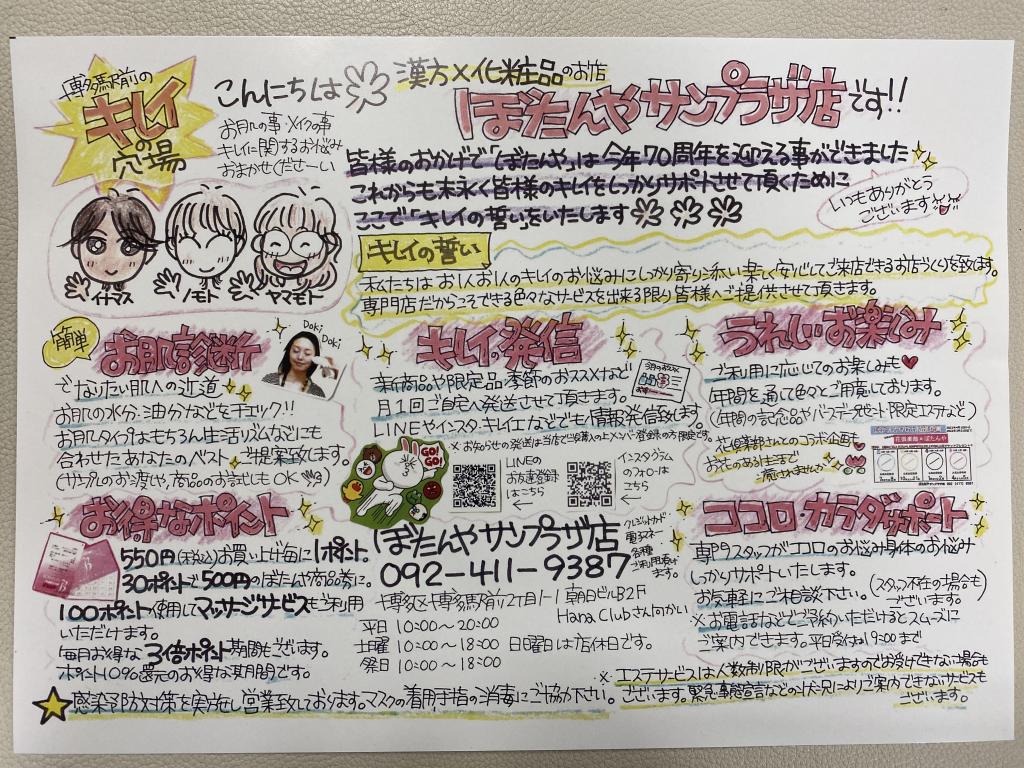 博多駅前の
キレイ
の
穴場
こんにちは
漢方×化粧品のお店
ぼたんやサンプラザ店です!!
お肌の事・メイクの事
キレイに関するお悩み
おまかせくださーい
皆様のおかげで「ぼたんや」は今年70周年を迎える事ができました
これからも末永く皆様のキレイをしっかりサポートさせて頂くために
ここで「キレイの誓い」をいたします
いつもありがとう
ございます
イナマス
ノモト
ヤマモト
キレイの誓い
私たちはお1人お1人のキレイのお悩みにしっかり寄り添い楽しく安心してご来店できるお店づくりを致します。
専門店だからこそできる色々なサービスを出来る限り皆様へご提供させて頂きます。
簡単
お肌診断
Doki
Doki
でなりたい肌への近道
お肌の水分、油分などをチェック!!
お肌タイプはもちろん生活リズムなどにも
合わせたあなたのベストをご提案致します。
(サンプルのお渡しや、商品のお試しもOK)
キレイの発信
新商品や限定品、季節のおススメなど
月1回ご自宅へ発送させて頂きます。
LINEやインスタ、キレイエなどでも情報発信致します
※お知らせの発送は当店でご購入のメンバー登録の方限定です。
今月のおススメ
GO!
GO!
LINEの
お友達登録
はこちら
インスタグラム
のフォローは
こちら
うれしいお楽しみ
ご利用に応じてのお楽しみも
年間を通して色々とご用意しております。
(年間の記念品やバースデーセット限定エステなど)
花倶楽部さんとのコラボ企画も
お花のある生活で
癒されませんか
花倶楽部×ぼたんや
お得なポイント
550円(税込)お買い上げ毎に1ポイント。
30ポイントで500円のぼたんや商品券に。
100ポイント使用してマッサージサービスもご利用
いただけます。
毎月お得な3倍ポイント期間もございます。
ポイント10%還元のお得な期間です。
ぼたんやサンプラザ店
092-411-9387
クレジットカード
電子マネー
各種
ご利用頂け
ます。
博多区博多駅前2丁目1-1 朝日ビルB2F
Hana Clubさん向かい
平日 10:00～20:00
土曜 10:00～18:00 日曜日は店休日です。
祭日 10:00～18:00
ココロ・カラダサポート
専門スタッフがココロのお悩み身体のお悩み
しっかりサポートいたします。
お気軽にご相談下さい。
(スタッフ不在の場合も
ございます。)
※お電話などでご予約いただけるとスムーズに
ご案内できます。平日受付は19:00まで
※エステサービスは人数制限がございますのでお受けできない場合も
ございます。緊急事態宣言などの状況によりご案内できないサービスも
ございます。
感染予防対策を実施し営業致しております。マスクの着用手指の消毒にご協力下さい。